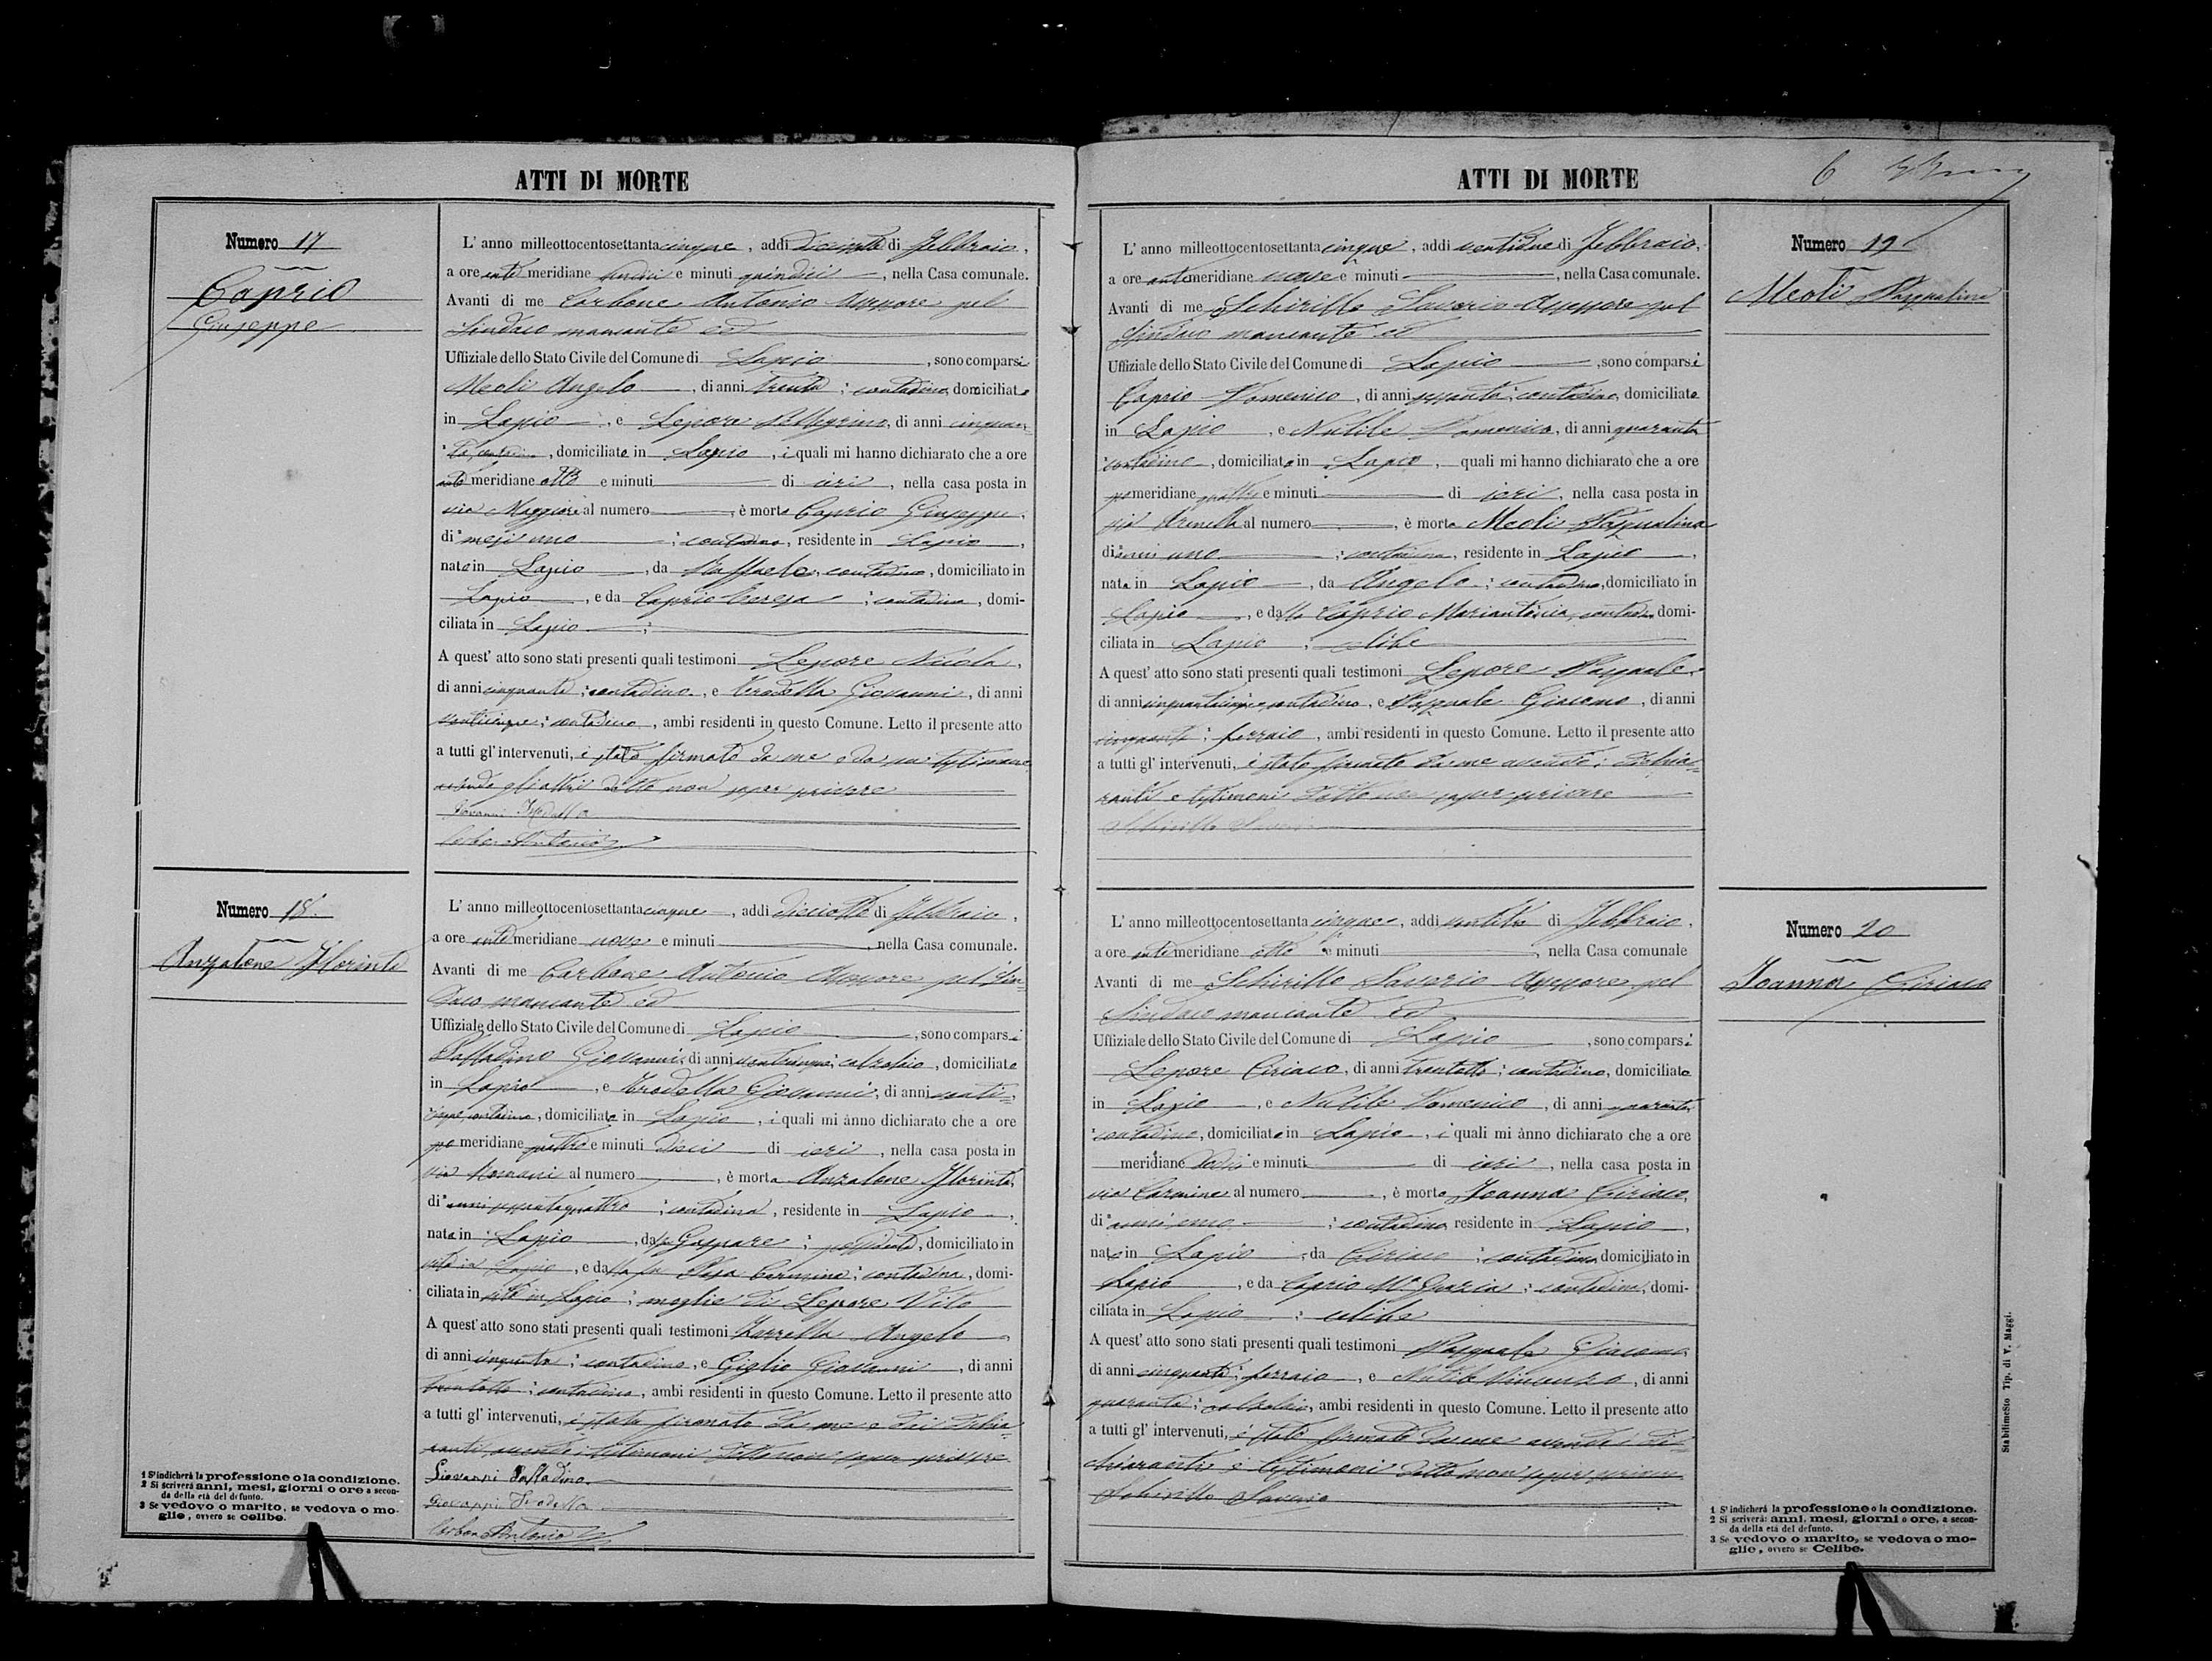 ATTI DI MORTE
Numero 17
Caprio
Giuseppe
L' anno milleottocentosettantacinque, addì di Febbraio,
a ore ante meridiane undici e minuti quindici, nella Casa comunale.
Avanti di me Carbone Antonio Assessore pel
Sindaco mancante ed
Uffiziale dello Stato Civile del Comune di Lapio, sono comparsi
Meoli Angelo, di anni trenta; contadino, domiciliato
in Lapio, e Lepore Pellegrino, di anni cinquan-
ta, contadino, domiciliato in Lapio, i quali mi hanno dichiarato che a ore
ante meridiane otto e minuti di ieri, nella casa posta in
via Maggiore al numero, è morto Caprio Giuseppe,
di mesi uno; contadino, residente in Lapio,
nato in Lapio, da Raffaele, contadino, domiciliato in
Lapio, e da Caprio Teresa; contadina, domi-
ciliata in Lapio;
A quest' atto sono stati presenti quali testimoni Lepore Nicola,
di anni cinquanta; contadino, e Tradella Giovanni, di anni
venticinque; contadino, ambi residenti in questo Comune. Letto il presente atto
a tutti gl' intervenuti, è stato firmato da me e da un testimone
avendo gli altri detto non saper scrivere
Giovanni Tradella
Carbone Antonio
Numero 18
Anzalone Florinta
L' anno milleottocentosettantacinque, addì diciotto di Febbraio,
a ore ante meridiane nove e minuti, nella Casa comunale.
Avanti di me Carbone Antonio Assessore pel Sin-
daco mancante ed
Uffiziale dello Stato Civile del Comune di Lapio, sono comparsi
Palladino Giovanni, di anni venticinque; calzolaio, domiciliato
in Lapio, e Tradella Giovanni, di anni venti-
cinque, contadino, domiciliato in Lapio, i quali mi ànno dichiarato che a ore
po meridiane quattro e minuti dieci di ieri, nella casa posta in
via Romani al numero, è morta Anzalone Florinta,
di anni sessantaquattro; contadina, residente in Lapio,
nata in Lapio, dal fu Gaspare; possidente, domiciliato in
vita in Lapio, e dalla fu Rosa Carmina; contadina, domi-
ciliata in vita in Lapio; moglie di Lepore Vito
A quest' atto sono stati presenti quali testimoni Zarrella Angelo
di anni cinquanta; contadino, e Giglio Giovanni, di anni
trentotto; contadino, ambi residenti in questo Comune. Letto il presente atto
a tutti gl' intervenuti, è stato firmato da me e dai dichia-
ranti avendo i testimoni detto non saper scrivere
Giovanni Palladino
Giovanni Tradella
Carbone Antonio
1 S' indicherà la professione o la condizione.
2 Si scriverà anni, mesi, giorni o ore a secon-
da della età del defunto.
3 Se vedovo o marito, se vedova o mo-
glie, ovvero se celibe.
ATTI DI MORTE
6
Numero 19
Meoli Pasqualina
L' anno milleottocentosettantacinque, addì ventidue di Febbraio,
a ore antemeridiane nove e minuti, nella Casa comunale.
Avanti di me Schirillo Saverio Assessore pel
Sindaco mancante ed
Uffiziale dello Stato Civile del Comune di Lapio, sono comparsi
Caprio Domenico, di anni sessanta; contadino, domiciliato
in Lapio, e Nutile Domenico, di anni quaranta
contadino, domiciliato in Lapio, quali mi hanno dichiarato che a ore
pomeridiane quattro e minuti di ieri, nella casa posta in
via al numero, è morta Meoli Pasqualina
di anni uno; contadina, residente in Lapio,
nata in Lapio, da Angelo; contadino, domiciliato in
Lapio, e dalla Caprio Mariantonia, contadina domi-
ciliata in Lapio; celibe
A quest' atto sono stati presenti quali testimoni Lepore Pasquale,
di anni cinquantacinque contadino, e Pasquale Giacomo, di anni
cinquanta; ferraio, ambi residenti in questo Comune. Letto il presente atto
a tutti gl' intervenuti, è stato firmato da me avendo i dichia-
ranti e testimoni detto non saper scrivere
Schirillo Saverio
Numero 20
Joanna Ciriaco
L' anno milleottocentosettantacinque, addì ventitre di Febbraio,
a ore ante meridiane otto e minuti, nella Casa comunale
Avanti di me Schirillo Saverio Assessore pel
Sindaco mancante ed
Uffiziale dello Stato Civile del Comune di Lapio, sono comparsi
Lepore Ciriaco, di anni trentotto; contadino, domiciliato
in Lapio, e Nutile Domenico, di anni quaranta
contadino, domiciliato in Lapio, i quali mi ànno dichiarato che a ore
meridiane dodici e minuti di ieri, nella casa posta in
via Carmine al numero, è morto Joanna Ciriaco,
di anni uno; contadino residente in Lapio,
nato in Lapio, da Ciriaco; contadino domiciliato in
Lapio, e da Caprio Mª Grazia; contadina, domi-
ciliata in Lapio; celibe
A quest' atto sono stati presenti quali testimoni Pasquale Giacomo,
di anni cinquanta; ferraio, e Nutile Vincenzo, di anni
quaranta; calzolaio, ambi residenti in questo Comune. Letto il presente atto
a tutti gl' intervenuti, è stato firmato da me avendo i di-
chiaranti e testimoni detto non saper scrivere
Schirillo Saverio
1 S' indicherà la professione o la condizione.
2 Si scriverà: anni, mesi, giorni o ore, a secon-
da della età del defunto.
3 Se vedovo o marito, se vedova o mo-
glie, ovvero se Celibe.
Stabilimento Tip. di V. Maggi.